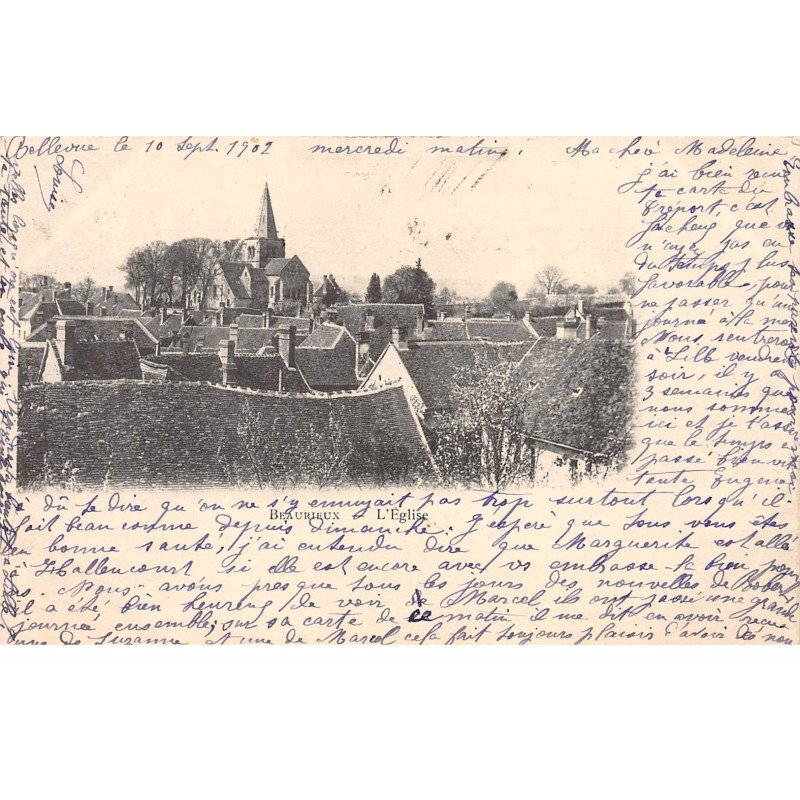 Bellevue le 10 Sept. 1902 mercredi matin. Ma chère Madeleine
j'ai bien reçu
ta carte du
Tréport, c'est
fâcheux que vs
n'ayez pas eu
du temps plus
favorable pour
passer
journée à la mer
Nous rentrerons
à Lille vendredi
soir, il y a
3 semaines que
nous sommes
ici et je t'assure
que le temps en
passé bien vite
tante Eugénie
a dû te dire qu'on ne s'y ennuyait pas trop surtout lorsqu'il
fait beau comme depuis dimanche. J'espère que tous vous êtes
en bonne santé, j'ai entendu dire que Marguerite est allée
à Hallencourt, si elle est encore avec vs embrasse-la bien pour
Nous avons presque tous les jours des nouvelles de Robert
il a été bien heureux de voir Marcel ils ont passé une grande
journée ensemble; sur sa carte de ce matin il me dit en avoir reçu
une de Suzanne et une de Marcel cela fait toujours plaisir d'avoir des nou
BEAURIEUX - L'Église
Louise